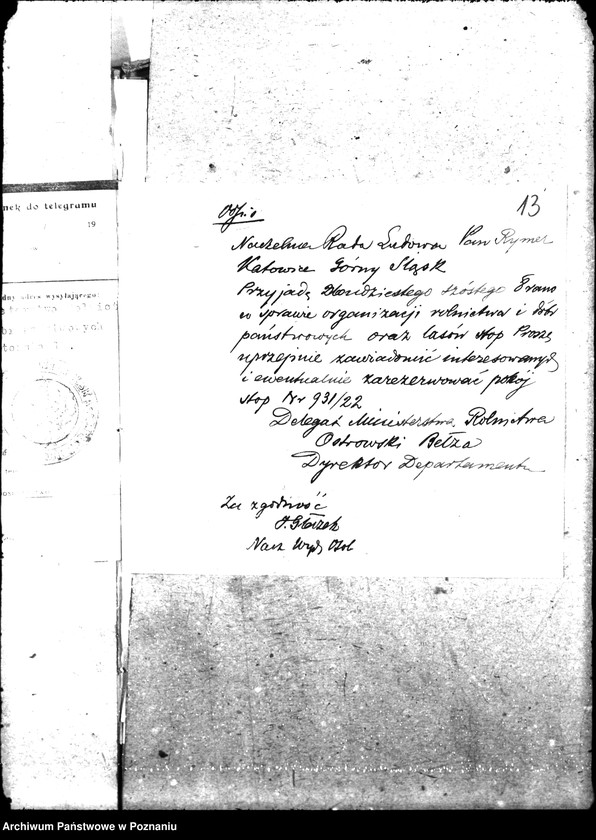 13
Odpis
Naczelna Rada Ludowa Pan Rymer
Katowice Górny Śląsk
Przyjadę Dwudziestego szóstego 8 rano
w sprawie organizacji rolnictwa i dóbr
państwowych oraz lasów stop Proszę
uprzejmie zawiadomić interesowanych
i ewentualnie zarezerwować pokój
stop Nr 931/22
Delegat Ministerstwa Rolnictwa
Ostrowski Bełza
Dyrektor Departamentu
Za zgodność
J. Głazek
Nacz Wydz
nek do telegramu
19
dny adres wysyłającego:
Archiwum Państwowe w Poznaniu